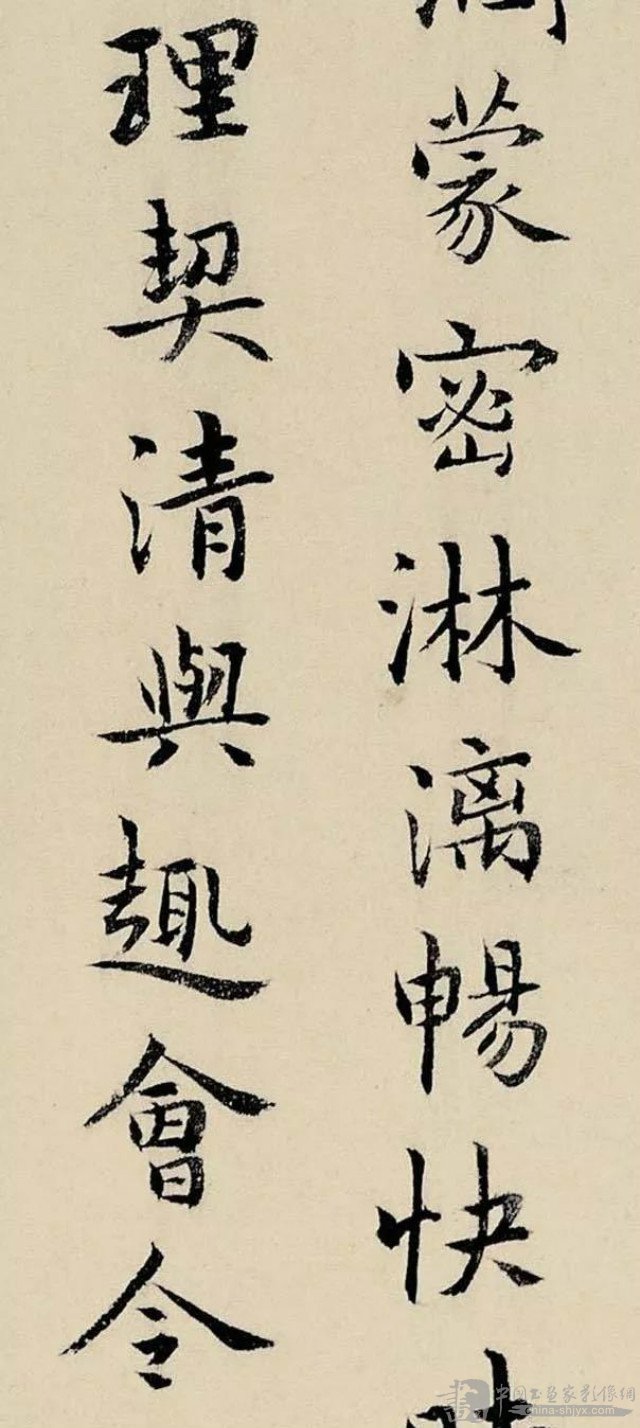 蒙密淋漓暢快
理契清與趣會令
中国书画家影像網
china-shjyx.com